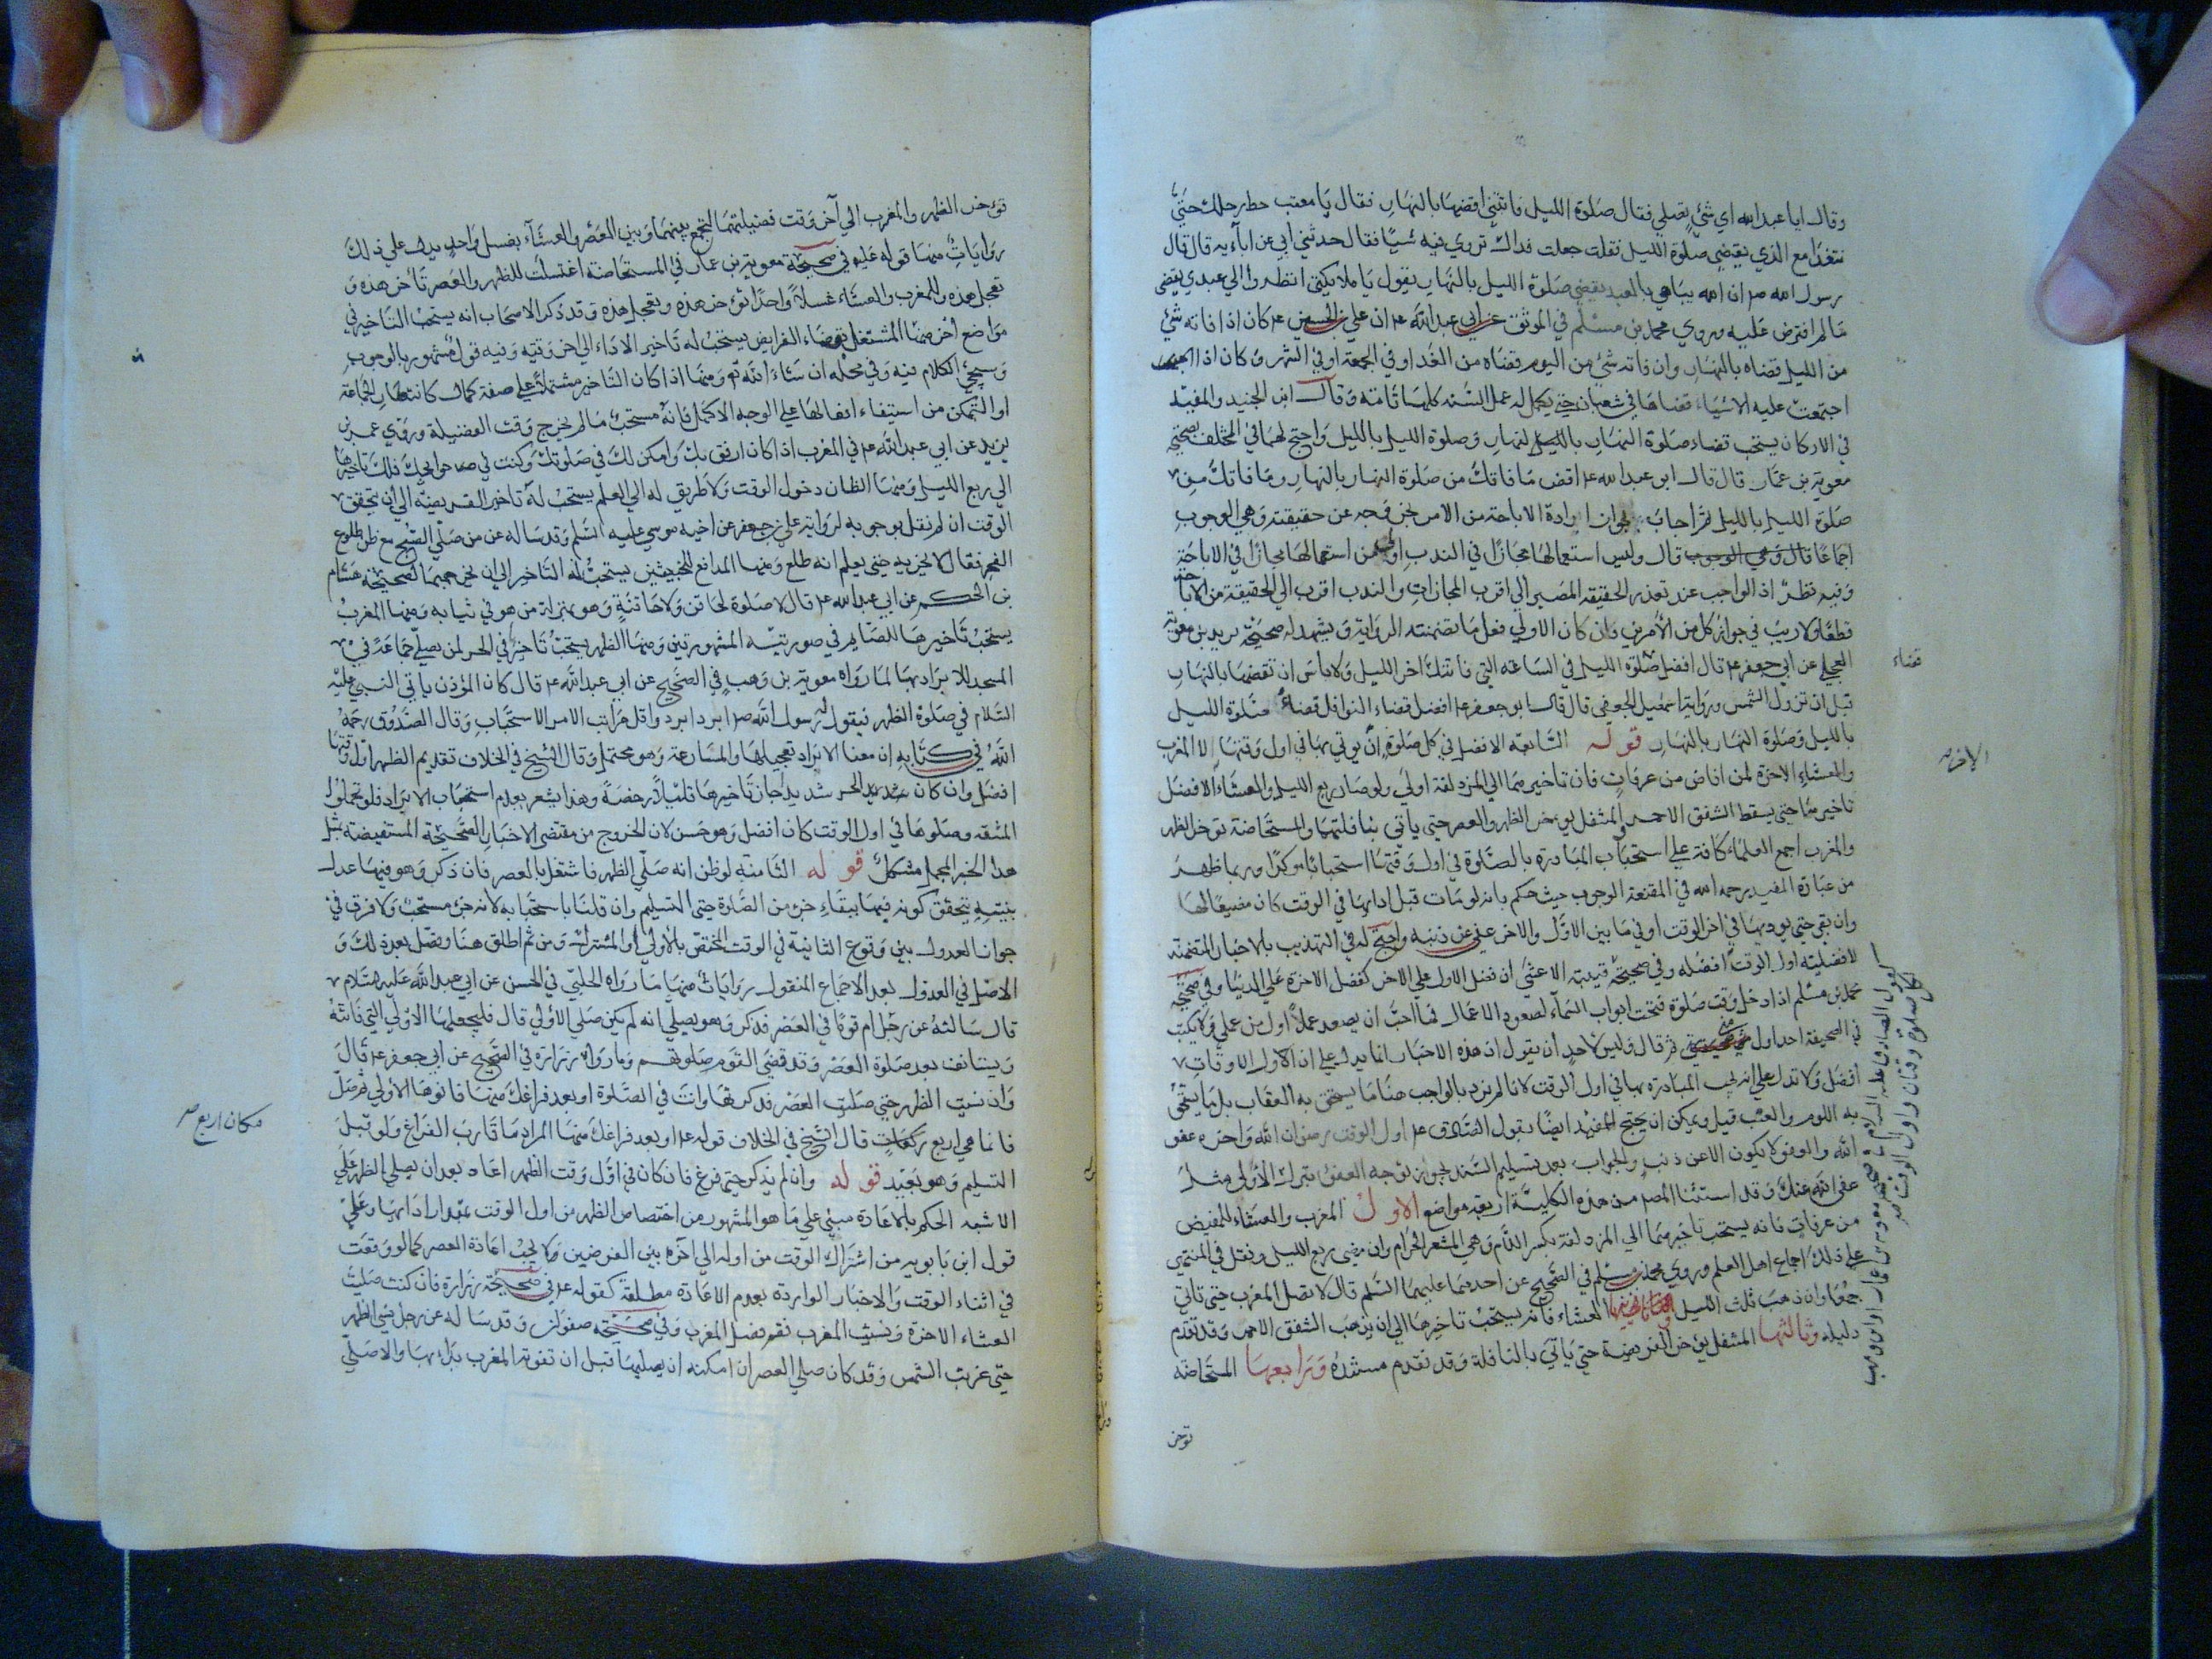 وقال ايا عبد الله اي شئ تصلي فقال صلوة الليل فاتتني اقضيها بالنهار فقال يا معتب حط رحلك حتي
نتغدا مع الذي يقضي صلوة الليل فقلت جعلت فداك تروي فيه شيئا فقال حدثني ابي عن ابآئه قال قال
رسول الله ص ان الله يباهي بالعبد يقضي صلوة الليل بالنهار يقول يا ملائكتي انظروا الي عبدي يقضي
مالم افترض عليه وروي محمد بن مسلم في الموثق عن ابي عبد الله ع ان علي بن الحسين ع كان اذا فاته شئ
من الليل قضاه بالنهار وان فاته شئ من اليوم قضاه من الغد او في الجمعة او في الشهر وكان اذا
اجتمعت عليه الاشياء قضاها في شعبان حتي يكمل له عمل السنه كلها تامة وقال ابن الجنيد والمفيد
في الاركان يستحب قضاء صلوة النهار بالنهار وصلوة الليل بالليل واحتج لهما في المختلف بصحيحة
معوية بن عمار قال قال ابو عبد الله ع اقض ما فاتك من صلوة النهار بالنهار وما فاتك من
صلوة الليل بالليل ثم اجاب بجواز ارادة الاباحة من الامر لخروجه عن حقيقته وهي الوجوب
اجماعا قال وليس استعمالها مجازا في الندب اولي من استعمالها مجازا في الاباحة
وفيه نظر اذ الواجب عند تعذر الحقيقة المصير الي اقرب المجازات والندب اقرب الي الحقيقة من الاباحة
قطعا ولا ريب في جواز كل من الامرين وان كان الاولي فعل ما تضمنته الرواية ويشهد له صحيحة بريد بن معوية
العجلي عن ابي جعفر ع قال افضل صلوة الليل في الساعة التي فاتتك اخر الليل ولا باس ان تقضيها بالنهار
قبل ان تزول الشمس ورواية اسمعيل الجعفي قال قال ابو جعفر ع افضل قضاء النوافل قضاء صلوة الليل
بالليل وصلوة النهار بالنهار قوله السابعة الافضل في كل صلوة ان يوتي بها في اول وقتها الا المغرب
والعشاء الاخرة لمن افاض من عرفات فان تاخيرهما الي المزدلفة اولي ولو صار ربع الليل والعشاء الافضل
تاخيرها حتي يسقط الشفق الاحمر والمتنفل يوخر الظهر والعصر حتي ياتي بنافلتهما والمستحاضة توخر الظهر
والمغرب اجمع العلماء كافة علي استحباب المبادرة بالصلوة في اول وقتها استحبابا موكدا وربما ظهر
من عبارة المفيد رحمه الله في المقنعة الوجوب حيث حكم بانه لو مات قبل ادائها في الوقت كان مضيعا لها
وان بقي حتي يوديها في اخر الوقت او فيما بين الاول والاخر عفي عن ذنبه واحتج له في التهذيب بالاخبار المتضمنه
لافضلية اول الوقت افضله وفي صحيحة قتيبة الاعشي ان فضل الاول علي الاخر كفضل الاخرة علي الدنيا وفي صحيحة
محمد بن مسلم اذا دخل وقت صلوة فتحت ابواب السماء لصعود الاعمال فما احب ان يصعد عملا اول من عملي ولا يكتب
في الصحيفة احد اول مني ثم قال وليس لاحد ان يقول ان هذه الاخبار انما يدل علي ان الاول الاوقات
افضل ولا تدل علي انه تجب المبادرة بها في اول الوقت لانا لم نرد بالواجب هنا ما يستحق به العقاب بل ما يستحق
به اللوم والعتب قيل ويمكن ان يحتج للمفيد ايضا بقول الصادق ع اول الوقت رضوان الله واخره عفو
الله والعفو لا يكون الا عن ذنب والجواب بعد تسليم السند بجواز توجه العفو بترك الاولي مثل
عفي الله عنك وقد استثنا المص من هذه الكلية اربعة مواضع الاول المغرب والعشاء للمفيض
من عرفات فانه يستحب تاخيرهما الي المزدلفة بكسر اللام وهي المشعر الحرام وان مضي ربع الليل ونقل في المنتهي
علي ذلك اجماع اهل العلم وروي محمد بن مسلم في الصحيح عن احدهما عليهما السلم قال لا تصل المغرب حتي تاتي
جمعا وان ذهب ثلث الليل وثانيها العشاء فانه يستحب تاخيرها الي ان يذهب الشفق الاحمر وقد تقدم
دليله وثالثها المتنفل يؤخر الفريضة حتي ياتي بالنافلة وقد تقدم مستنده ورابعها المستحاضه
قضاء
الاخرة
لكل صلوة وقتان واول الوقت
توخر
تؤخر الظهر والمغرب الي آخر وقت فضيلتهما لتجمع بينهما وبين العصر والعشآء بغسل واحد يدل علي ذلك
روايات منها قوله عليه في صحيحة معوية بن عمار في المستحاضة اغتسلت للظهر والعصر تاخر هذه و
تعجل هذه وللمغرب والعشاء غسلا واحدا تؤخر هذه وتعجل هذه وقد ذكر الاصحاب انه يستحب التاخير في
مواضع اخر منها المشتغل بقضاء الفرايض يستحب له تاخير الاداء الي اخر وقته وفيه قول مشهور بالوجوب
وسيجئ الكلام فيه وفي محله ان شاء الله تع ومنها اذا كان التاخير مشتملا علي صفة كمال كانتظار الجماعة
او التمكن من استيفاء افعالها علي الوجه الاكمل فانه مستحب مالم يخرج وقت الفضيلة وروي عمر بن
يزيد عن ابي عبد الله ع في المغرب اذا كان ارفق بك وامكن لك في صلوتك وكنت في حوايجك فلك تاخيرها
الي ربع الليل ومنها الظان دخول الوقت ولا طريق له الي العلم يستحب له تاخير الفريضة الي ان يتحقق
الوقت ان لم نقل بوجوبه لرواية علي بن جعفر عن اخيه موسي عليه السلم وقد ساله عن من صلي الصبح مع ظن طلوع
الفجر فقال لا يجزيه حتي يعلم انه طلع ومنها المدافع للخبيثين يستحب له التاخير الي ان يخرجهما لصحيحة هشام
بن الحكم عن ابي عبد الله ع قال لا صلوة لحاقن ولا حاقنة وهو بمنزلة من هو في ثيابه ومنها المغرب
يستحب تاخيرها للصايم في صورتيه المشهورتين ومنها الظهر يستحب تاخيرها في الحر لمن يصلي جماعة في
المسجد للابراد بها لما رواه معوية بن وهب في الصحيح عن ابي عبد الله ع قال كان المؤذن ياتي النبي عليه
السلام في صلوة الظهر فيقول له رسول الله ص ابرد ابرد واقل مراتب الامر الاستحباب وقال الصدوق رحمه
الله في كتابه ان معنا الابراد تعجيلها والمسارعة وهو محتمل وقال الشيخ في الخلاف تقديم الظهر اول وقتها
افضل وان كان الحر شديد جاز تاخيرها قليلا رخصة وهذا يشعر بعدم استحباب الابراد فلو تحملوا
المشقه وصلوها في اول الوقت كان افضل وهو حسن لان الخروج من مقتضي الاخبار الصحيحة المستفيضة بمثل
هذا الخبر المجمل مشكل قوله الثامنة لو ظن انه صلي الظهر فاشتغل بالعصر فان ذكر وهو فيها عدل
بنيته يتحقق كونه فيها ببقاء جزء من الصلوة حتي التسليم وان قلنا باستحبابه لانه جزء مستحب ولا فرق في
جواز العدول بين وقوع الثانية في الوقت المختص بالاولي او المشترك ومن ثم اطلق هنا وفصل بعد ذلك و
الاصل في العدول بعد الاجماع المنقول روايات منها ما رواه الحلبي في الحسن عن ابي عبد الله عليه السلام
قال سالته عن رجل ام قوما في العصر فذكر وهو يصلي انه لم يكن صلي الاولي قال فليجعلها الاولي التي فاتته
ويستانف بعد صلوة العصر وقد قضي القوم صلوتهم وما رواه زرارة في الصحيح عن ابي جعفر ع قال
وان نسيت الظهر حتي صليت العصر فذكرتها وانت في الصلوة او بعد فراغك منها فانوها الاولي ثم صل
فانما هي اربع ركعات قال الشيخ في الخلاف قوله ع او بعد فراغك منها المراد ما قارب الفراغ ولو قبل
التسليم وهو بعيد قوله وان لم يذكر حتي فرغ فان كان في اول وقت الظهر اعاد بعد ان يصلي الظهر علي
الاشبه الحكم بالاعادة مبني علي ما هو المشهور من اختصاص الظهر من اول الوقت بمقدار ادائها وعلي
قول ابن بابويه من اشتراك الوقت من اوله الي آخره بين الفرضين ولا يجب اعادة العصر كما لو وقعت
في اثناء الوقت والاخبار الواردة بعدم الاعادة مطلقة كقوله ع في صحيحة زرارة فان كنت صليت
العشاء الاخرة ونسيت المغرب فقم فصل المغرب وفي صحيحة صفوان وقد ساله عن رجل نسي الظهر
حتي غربت الشمس وقد كان صلي العصر ان امكنه ان يصليها قبل ان تفوته المغرب بدا بها والا صلي
مكان اربع